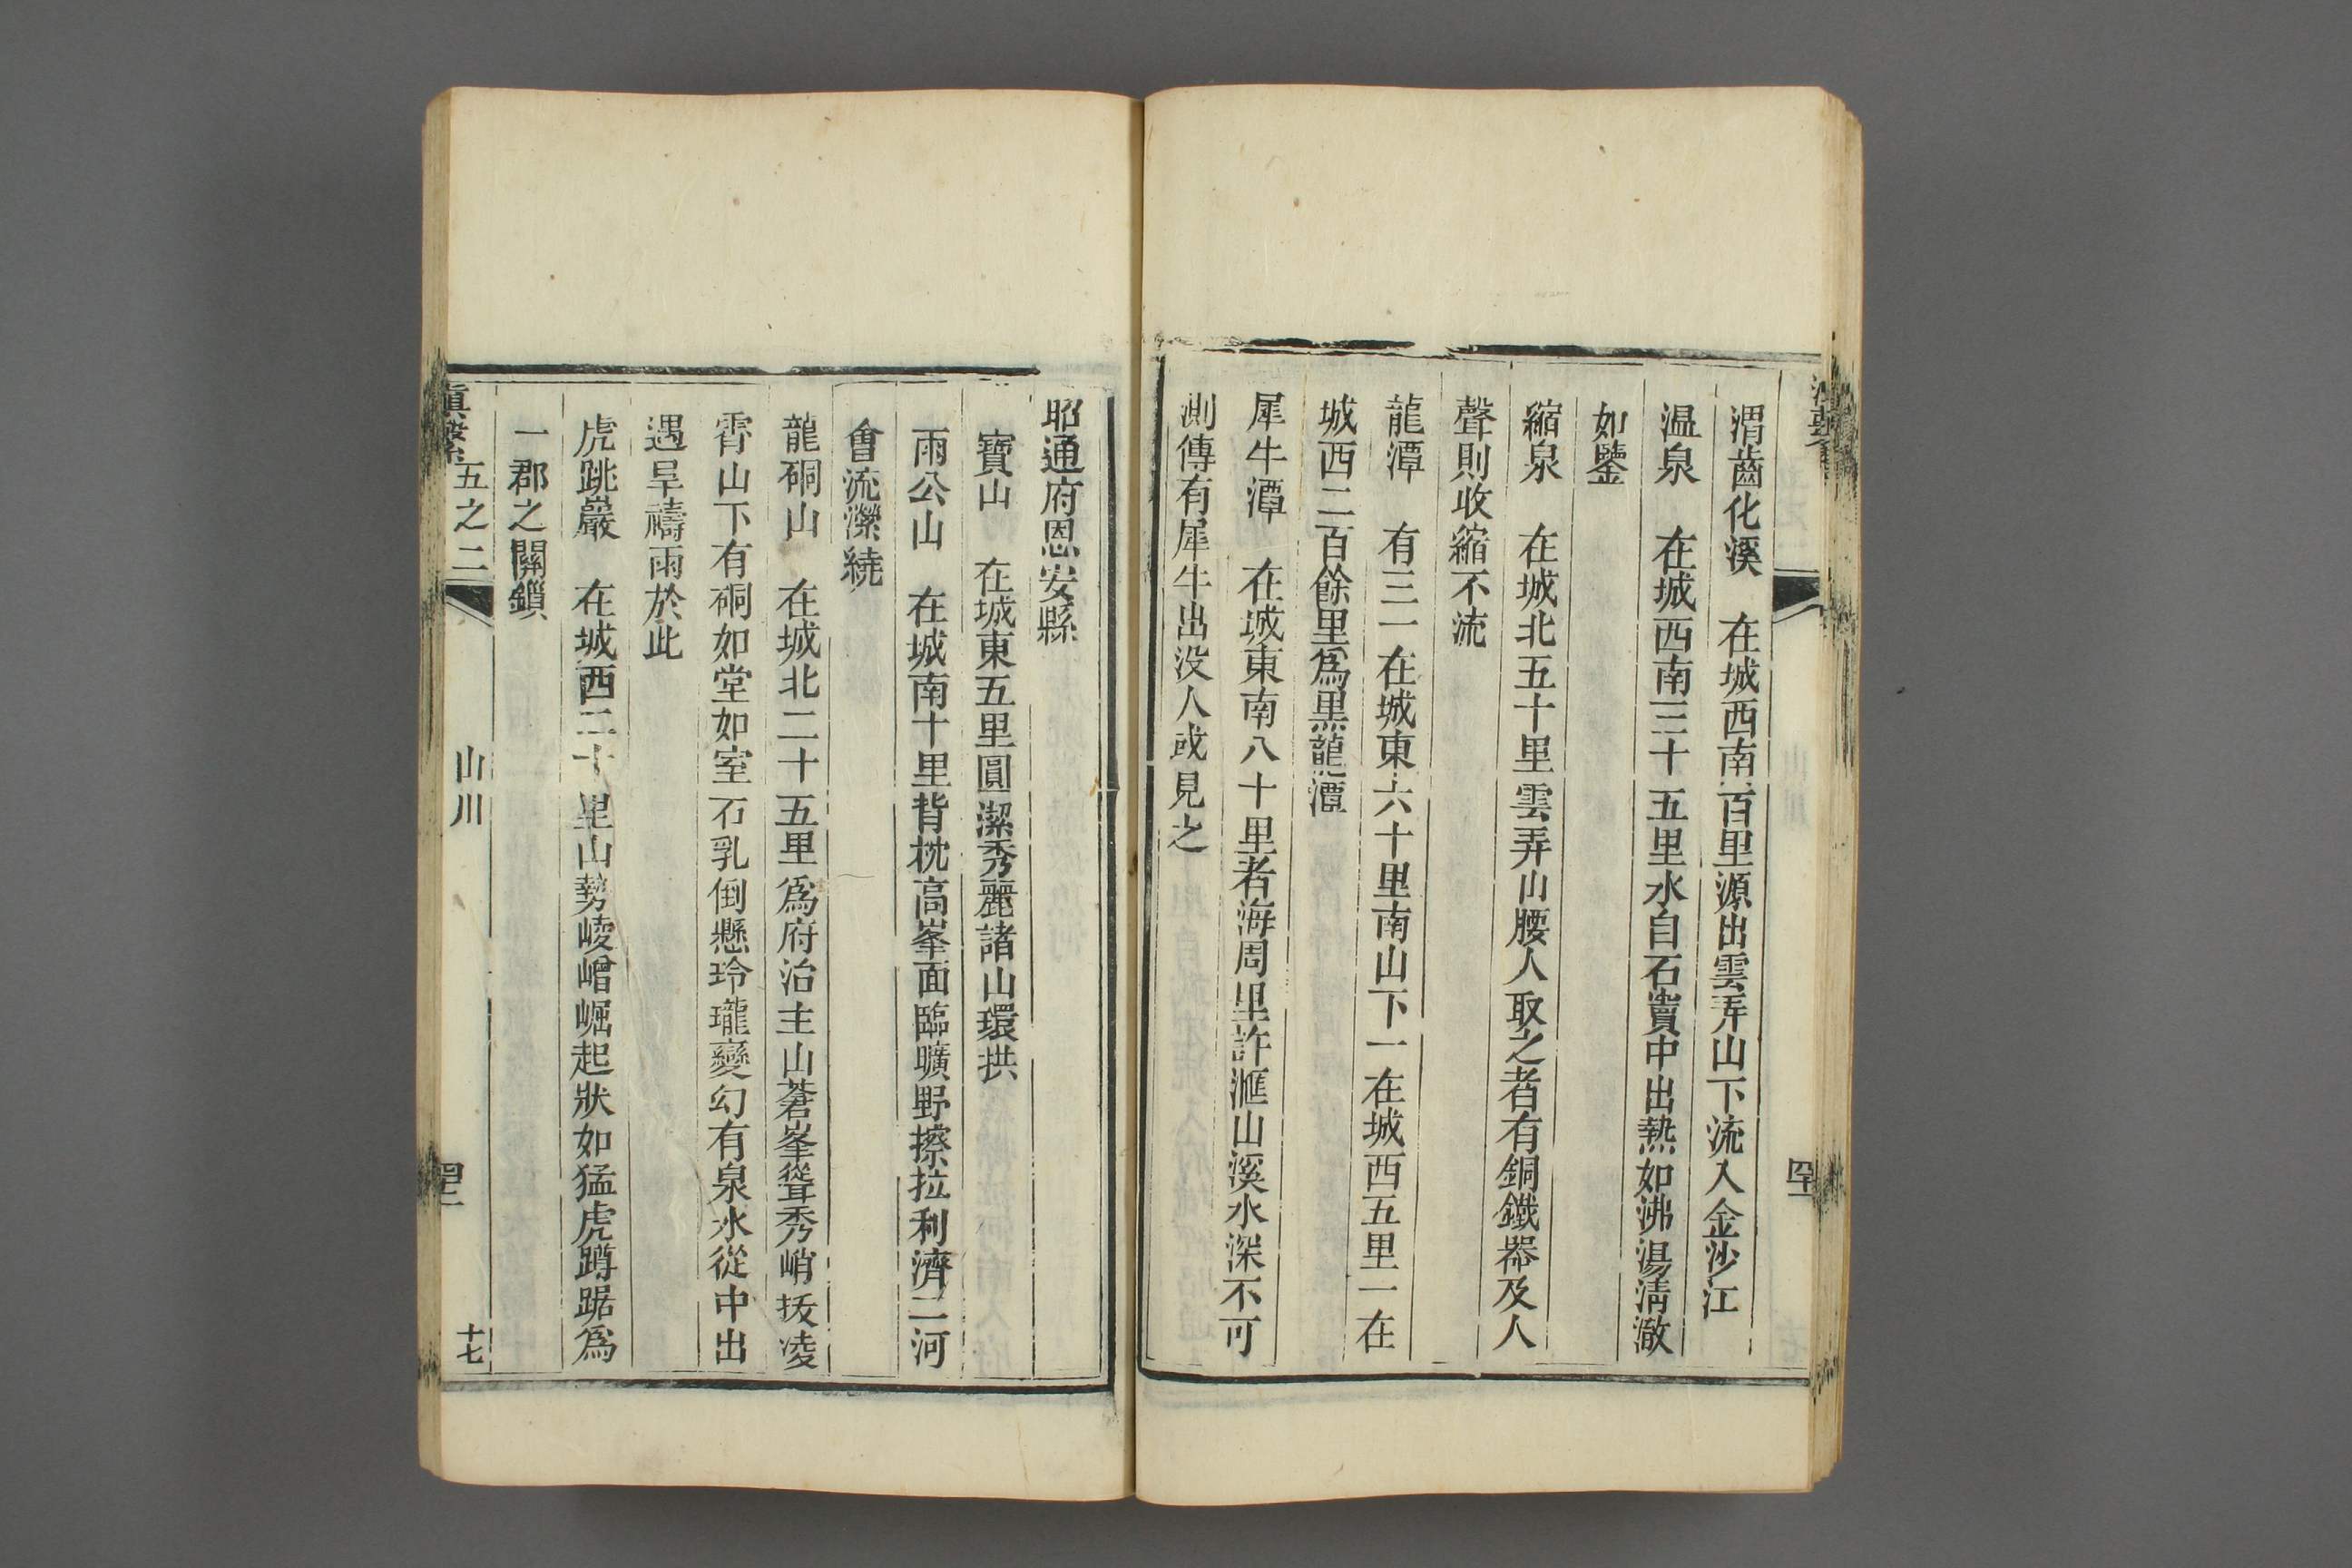 渭齒化溪　在城西南百里源出雲弄山下流入金沙江
温泉　在城西南三十五里水自石竇中出熱如沸湯清澈
如鑒
縮泉　在城北五十里雲弄山腰人取之者有銅鐵器及人
聲則收縮不流
龍潭　有三一在城東六十里南山下一在城西五里一在
城西二百餘里爲黒龍潭
犀牛潭　在城東南八十里者海周里許滙山溪水深不可
測傳有犀牛出没人或見之
昭通府恩安縣
寶山　在城東五里圓潔秀麗諸山環拱
雨公山　在城南十里背枕高峯面臨曠野擦拉利濟二河
會流濚繞
龍硐山　在城北二十五里爲府治主山蒼峯聳秀峭拔凌
霄山下有硐如堂如室石乳倒懸玲瓏變幻有泉水從中出
遇旱禱雨於此
虎跳巖　在城西二十里山勢崚嶒崛起狀如猛虎蹲踞爲
一郡之關鎖
滇繫　五之二　山川　十七